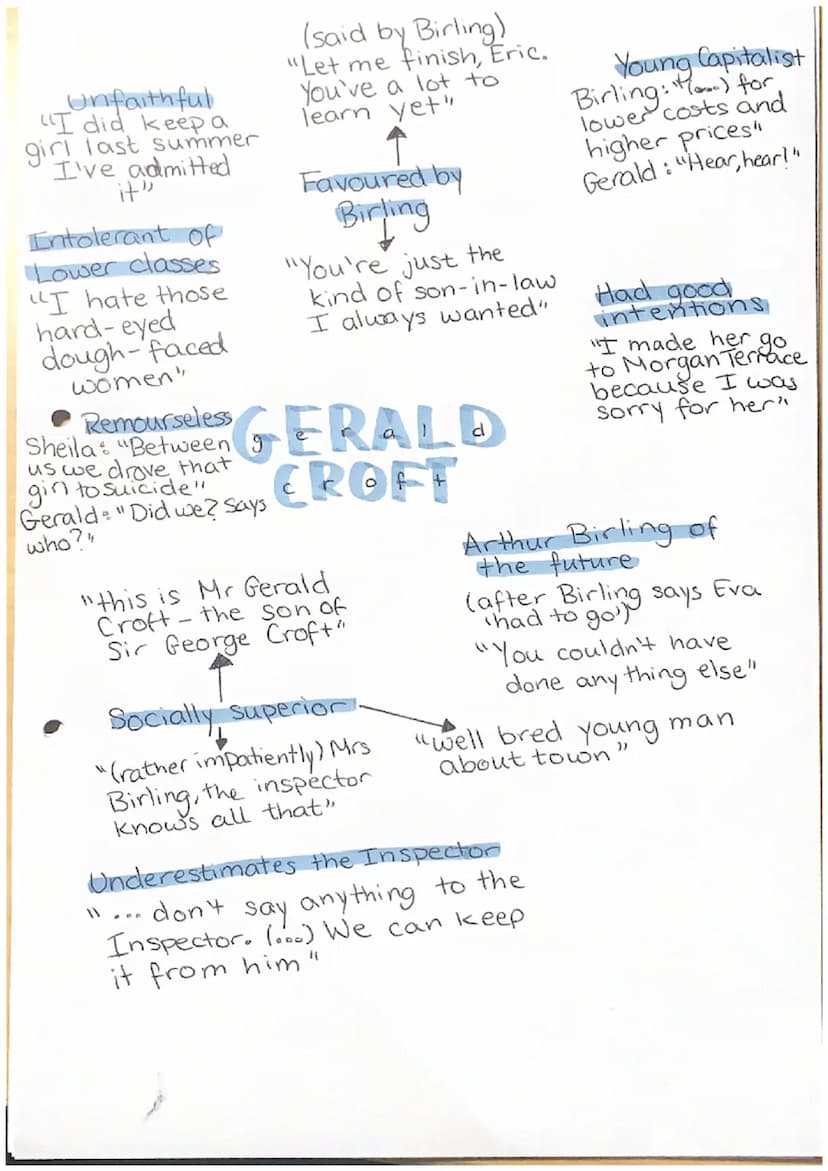 (said by Birling)
"Let me finish, Eric.
You've a lot to
learn yet"
Favoured by
Birling
"You're just the
kind of son-in-law
I always wanted"
Young Capitalist
Birling: "(....) for
lower costs and
higher prices"
Gerald: "Hear, hear!"
Unfaithful
"I did keep a
girl last summer
I've admitted
it"
Entolerant of
Lower classes
"I hate those
hard-eyed
dough-faced
women"
Had good
intentions
"I made her go
to Morgan Terrace
because I was
sorry for her"
Remourseless
Sheila: "Between
us we drove that
girl to suicide"
Gerald: "Did we? Says
who?"
GERALD
gerald
CROFT
croft
Arthur Birling of
the future
(after Birling says Eva
'had to go')
"You couldn't have
done anything else"
"this is Mr Gerald
Croft - the son of
Sir George Croft"
Socially superior
"(rather impatiently) Mrs
Birling, the inspector
knows all that"
"well bred young man
about town"
Underestimates the Inspector
"... don't say anything to the
Inspector. (...) We can keep
it from him"